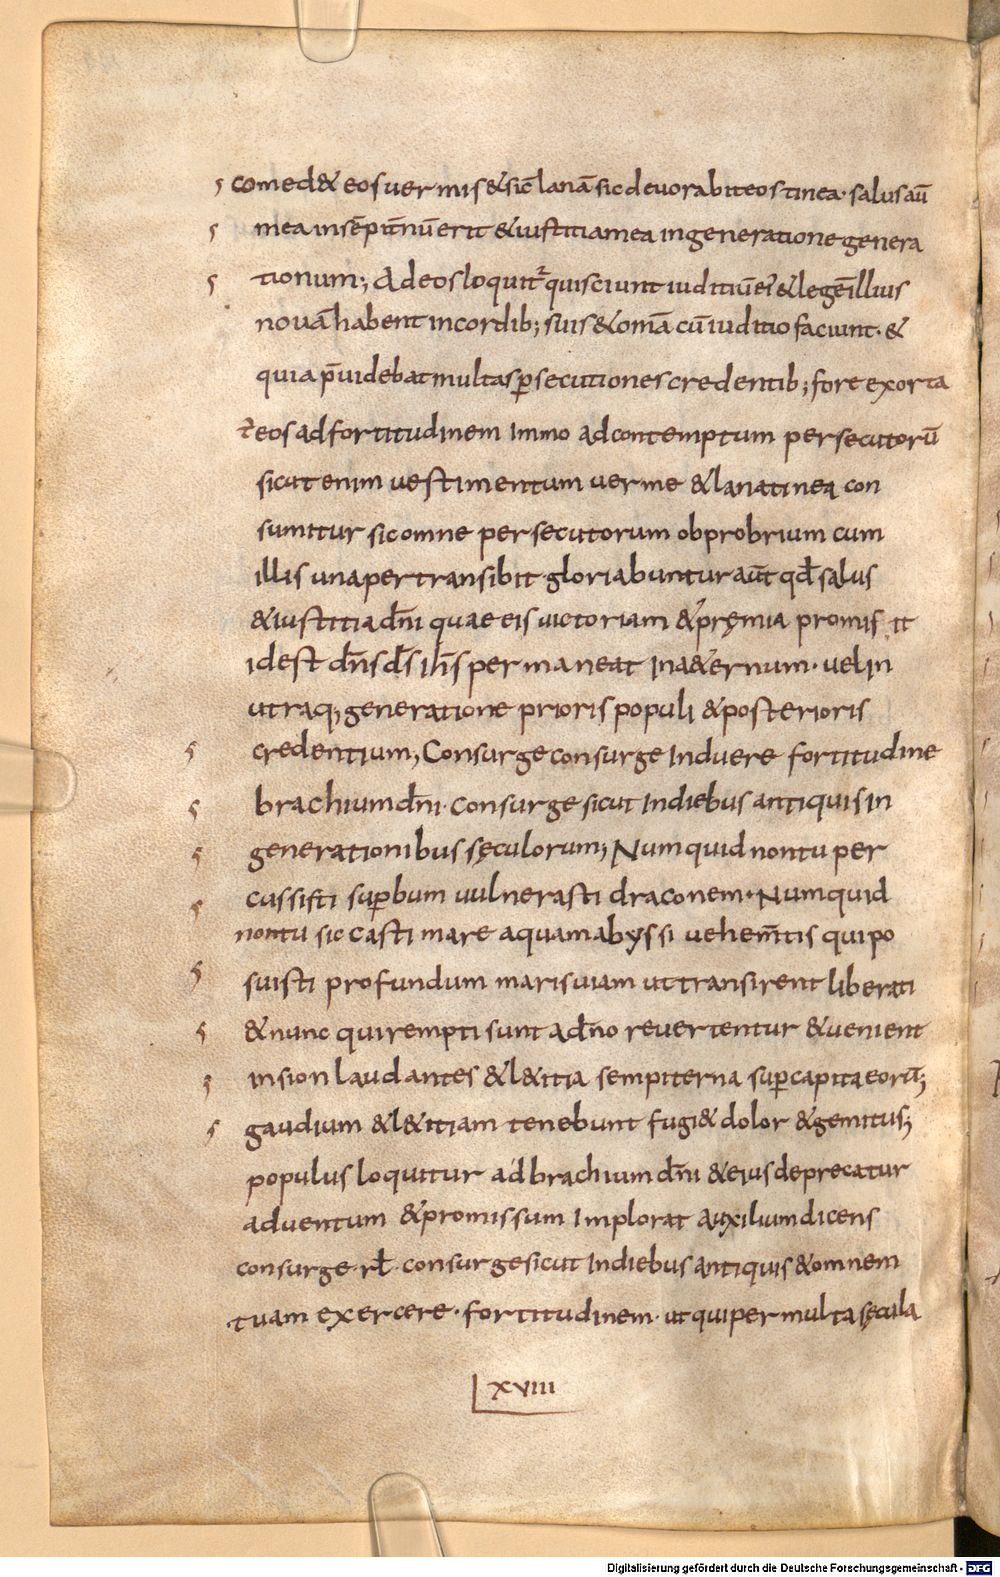 comed& eos uermis & sic̄ lanā sic deuorabit eos tinea· salus aū
mea in sēpit̄nū erit & iustitia mea in generatione genera
tionum; Ad eos loquit᷑ qui sciunt iuditiū ei᷑ & legē illius
nouā habent in cordib; suis & om̄a cū iuditio faciunt· &
quia p̄uidebat multas ꝑsecutiones credentib; fore exorta
eos ad fortitudinem immo ad contemptum persecutorū
sicut enim uestimentum uerme & lana tinea con
sumitur sic omne persecutorum obprobrium cum
illis una pertransibit gloriabuntur aūt qd̄ salus
& iustitia dn̄i quae eis uictoriam & pręmia promisit
id est dn̄s d̄s ih̄s permaneat in a&ernum· uel in
utraq; generatione prioris populi & posterioris
credentium; Consurge consurge induere fortitudine
brachium dn̄i· consurge sicut in diebus antiquis in
generationibus sęculorum; Numquid non tu per
cussisti suꝑbum uulnerasti draconem· Numquid
non tu siccasti mare aquam abyssi uehem̄tis qui po
suisti profundum maris uiam ut transirent liberati
& nunc qui rempti sunt a dn̄o reuertentur & uenient
in sion laudantes & l&itia sempiterna suꝑ capita eorū;
gaudium & l&itiam tenebunt fugi& dolor & gemitus;
populus loquitur ad brachium dn̄i & eius deprecatur
aduentum & promissum implorat auxilium dicens
consurge· rł· consurge sicut in diebus antiquis & omnem
tuam exercere· fortitudinem· ut qui per multa sęcula
XVIII
Digitalisierung gefördert durch die Deutsche Forschungsgemeinschaft - DFG